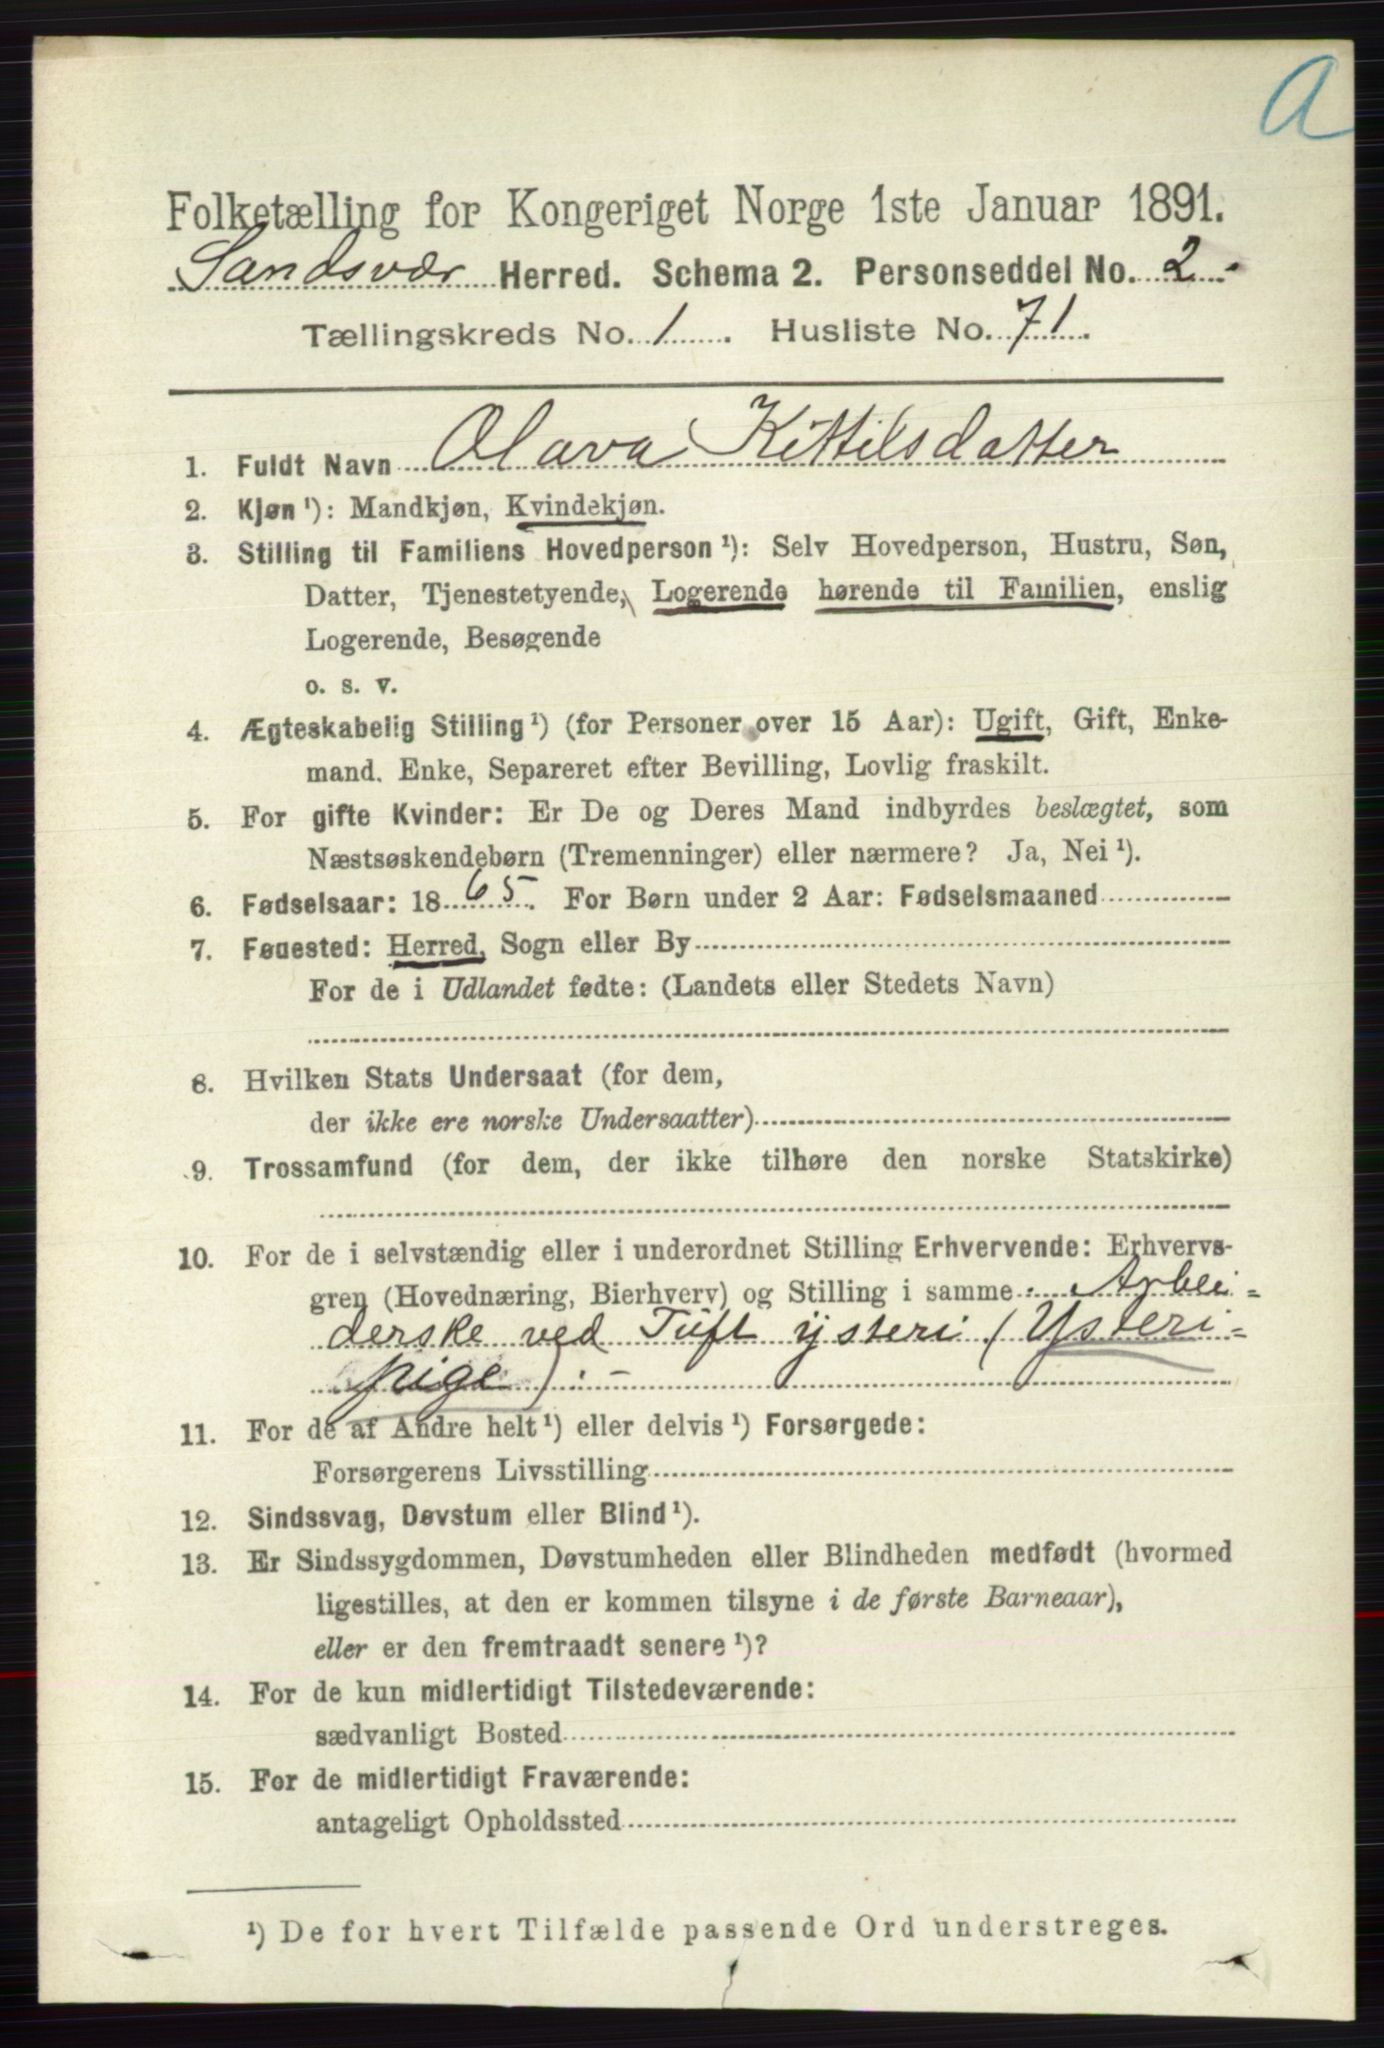 A
Folketælling for Kongeriget Norge 1ste Januar 1891.
Sandsvær Herred. Schema 2. Personseddel No. 2
Tællingskreds No. 1. Husliste No. 71.
1. Fuldt Navn Olava Kittilsdatter
2. Kjøn¹): Mandkjøn, Kvindekjøn.
3. Stilling til Familiens Hovedperson¹): Selv Hovedperson, Hustru, Søn,
Datter, Tjenestetyende, Logerende hørende til Familien, enslig
Logerende, Besøgende
o. s. v.
4. Ægteskabelig Stilling¹) (for Personer over 15 Aar): Ugift, Gift, Enke-
mand. Enke, Separeret efter Bevilling, Lovlig fraskilt.
5. For gifte Kvinder: Er De og Deres Mand indbyrdes beslægtet, som
Næstsøskendebørn (Tremenninger) eller nærmere? Ja, Nei¹).
6. Fødselsaar: 1865. For Børn under 2 Aar: Fødselsmaaned
7. Føuested: Herred, Sogn eller By
For de i Udlandet fødte: (Landets eller Stedets Navn)
8. Hvilken Stats Undersaat (for dem,
der ikke ere norske Undersaatter)
9. Trossamfund (for dem, der ikke tilhøre den norske Statskirke)
10. For de i selvstændig eller i underordnet Stilling Erhvervende: Erhvervs-
gren (Hovednæring, Bierhverv) og Stilling i samme Arbei-
derske ved Tuft ysteri (Ysteri-
pige).
11. For de af Andre helt¹) eller delvis¹) Forsørgede:
Forsørgerens Livsstilling
12. Sindssvag, Døvstum eller Blind¹).
13. Er Sindssygdommen, Døvstumheden eller Blindheden medfødt (hvormed
ligestilles, at den er kommen tilsyne i de første Barneaar),
eller er den fremtraadt senere¹)?
14. For de kun midlertidigt Tilstedeværende:
sædvanligt Bosted
15. For de midlertidigt Fraværende:
antageligt Opholdssted
¹) De for hvert Tilfælde passende Ord understreges.